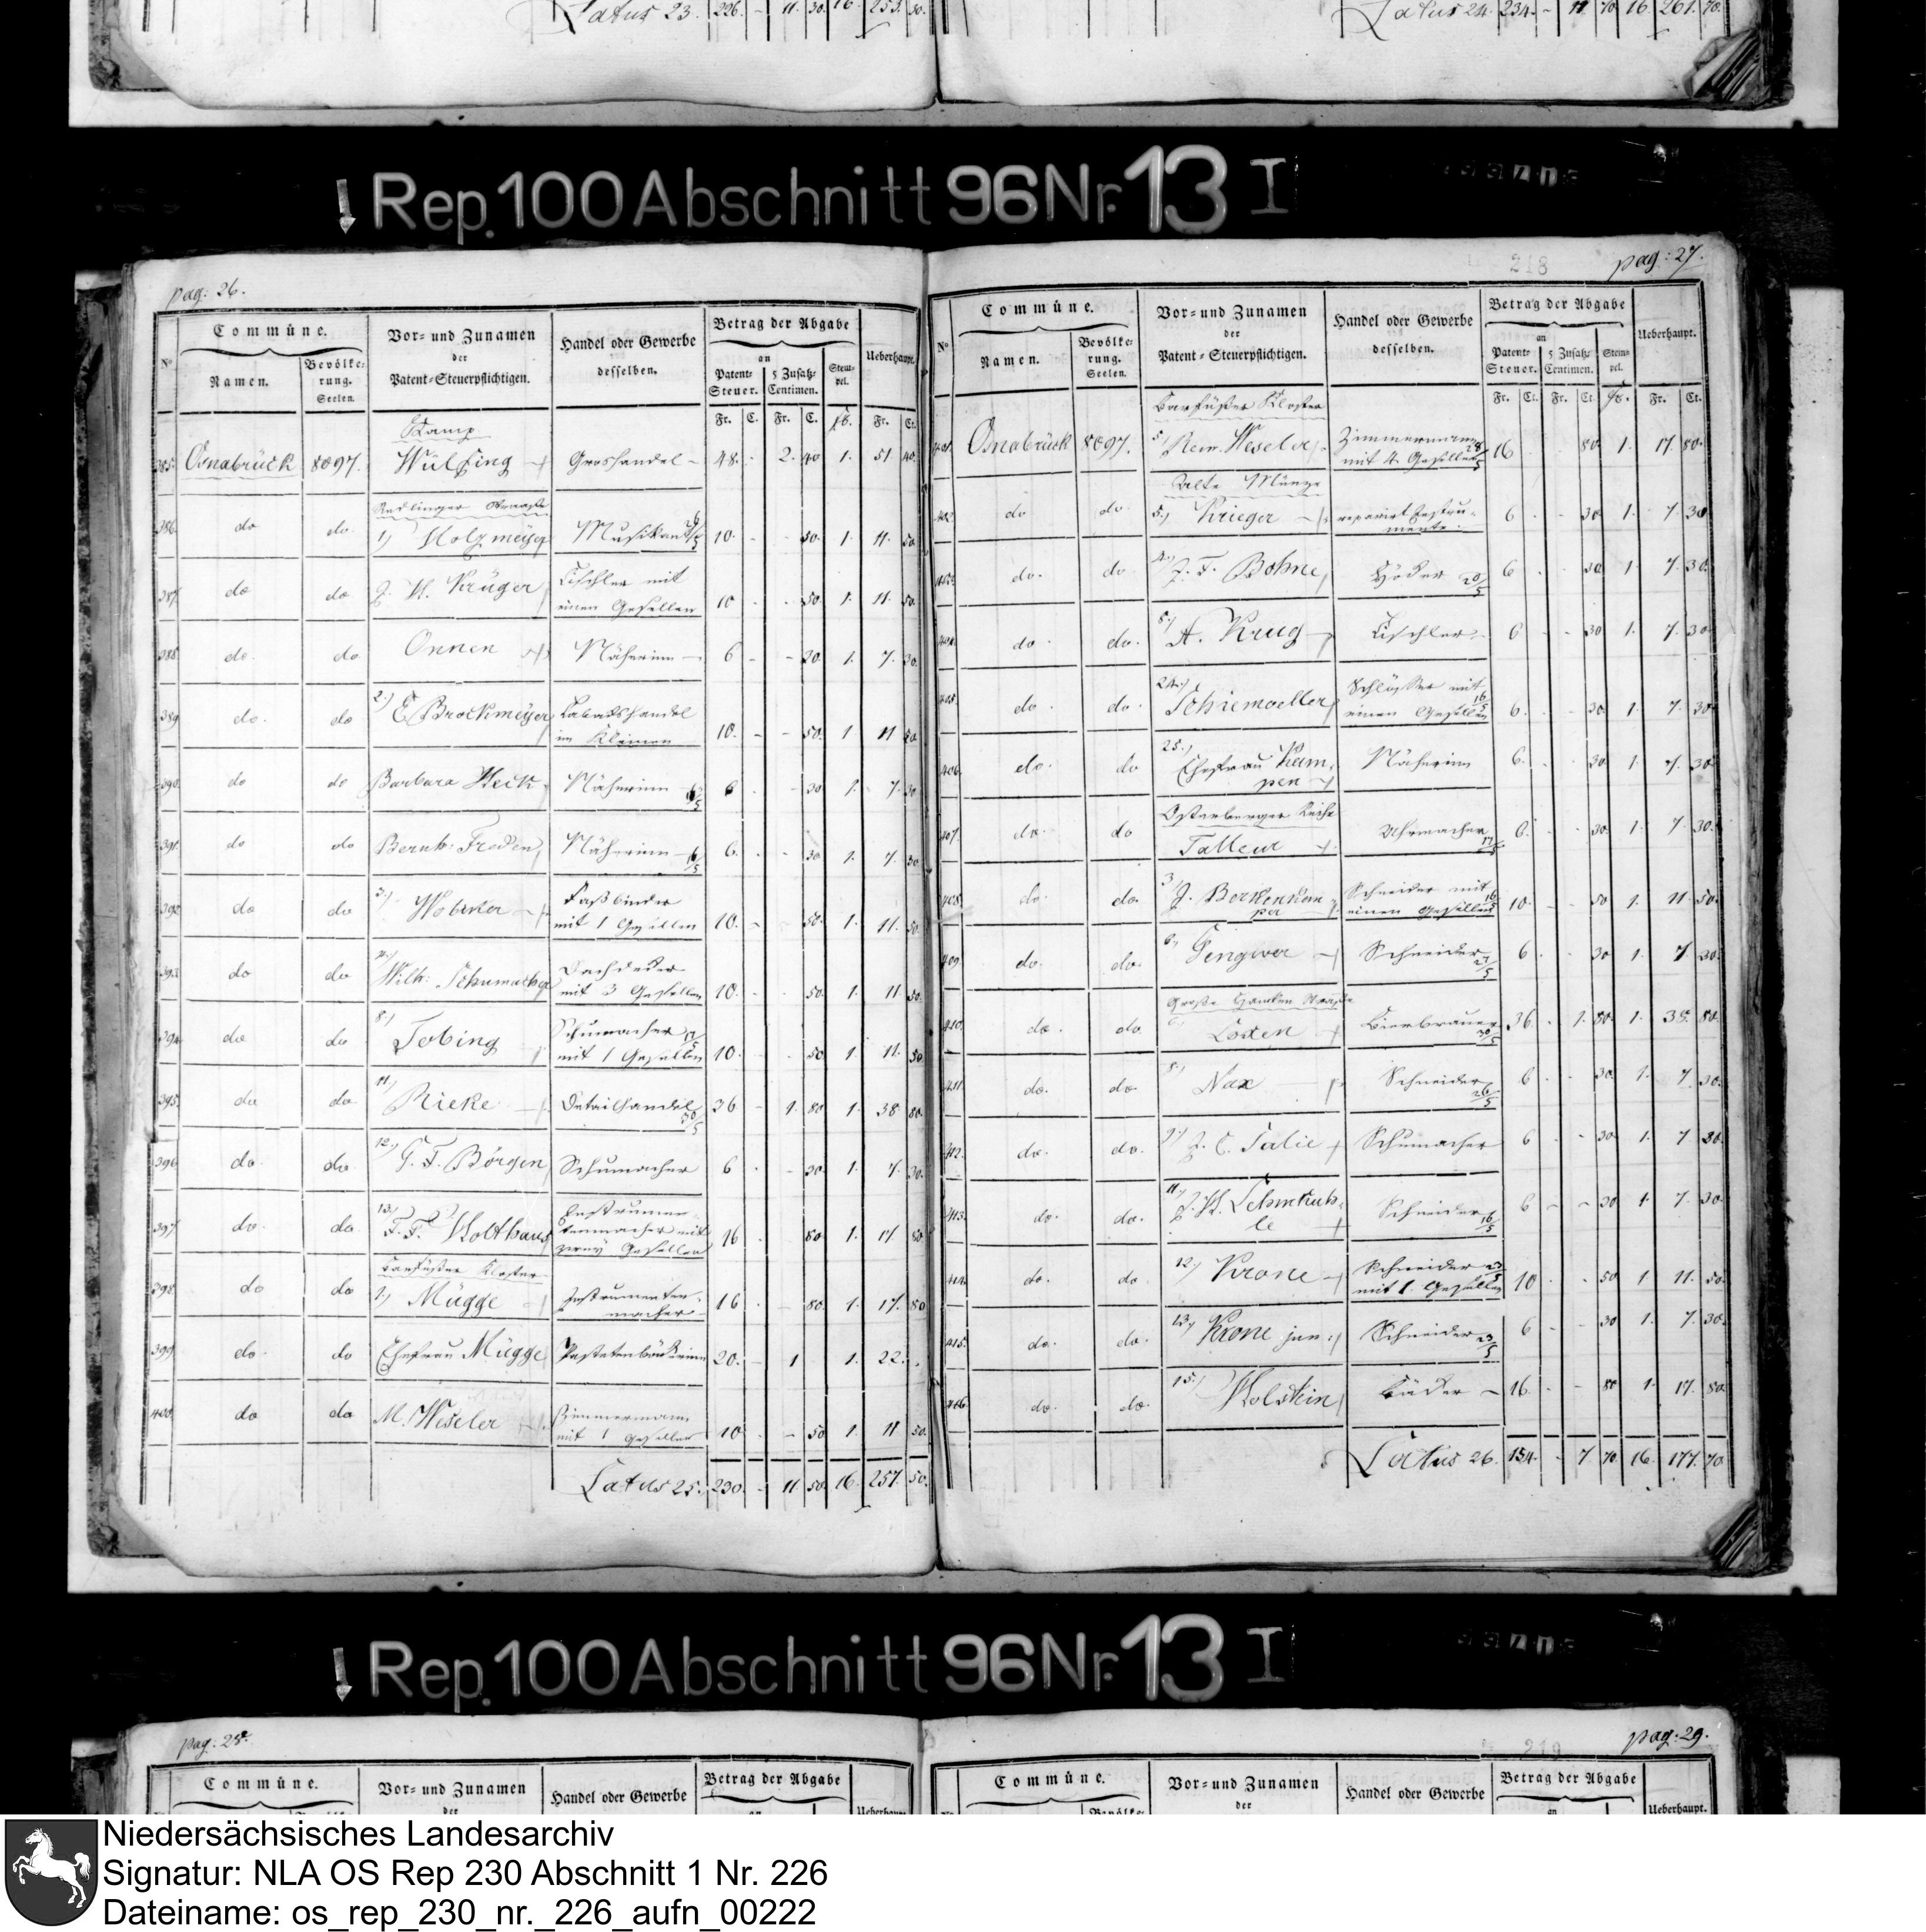 Latus 23. 226. - 11. 30. 16. 253. 30.
Latus 24. 234. - 11 70 16. 261. 70.
Rep. 100 Abschnitt 96 Nr. 13 I
pag: 26.
Commüne.
Vor- und Zunamen
der
Patent-Steuerpflichtigen.
Handel oder Gewerbe
desselben.
Betrag der Abgabe
an
Ueberhaupt.
No
Namen.
Bevölke-
rung.
Seelen.
Patent-
Steuer.
5 Zusatz-
Centimen.
Stem-
pel.
Fr. C. Fr. C. fr. Fr. Ct.
Kamp
385. Osnabrück 8097. Wülfing Groshandel 48. - 2. 40 1. 51. 40.
Redlinger Straaße
386. do do. 1, Holzmeyer Musikant 10. - - 50. 1. 11. 50.
387. do do J. H. Krüger Tischler mit
einen Gesellen 10 - - 50. 1. 11. 50.
388. do. do Onnen Näherinn 6 - - 30. 1. 7. 30.
389. do. do 2.) E Brockmeyer Tabakshandel
im Kleinen 10. - - 50. 1 11 50.
390. do do Barbara Heck Näherinn 16/5 6 - - 30 1. 7. 30
391. do do Bernh: Freden Näherinn 16/5 6. - - 30. 1. 7. 30
392. do do 3.) Wobeker Faßbinder
mit 1 Gesellen 10. - - 50. 1. 11. 50.
393. do do 4.) Wilh: Schumacher Dachdecker
mit 3 Gesellen 10. - - 50. 1. 11 50.
394. do do. 8.) Tobing Schumacher
mit 1 Gesellen 10. - - 50 1. 11. 50
395. do do. 11.) Rieke Detailhandel 36 - 1. 80. 1. 38. 80.
396. do. do. 12.) G. F. Börgen Schumacher 6 - - 30. 1. 7. 30.
397. do. do. 13.) F. F. Holthaus Instrumen-
tenmacher mit
zwey Gesellen 16 - - 80. 1. 17. 80
Barfüßer Kloster
398. do do 1.) Mügge Instrumenten-
macher 16 - - 80. 1. 17. 80
399. do. do Ehefrau Mügge Pastetenbäckerinn 20. - 1 1. 22. -
400. do do M. Weseler Zimmermann
mit 1 Gesellen 10 - - 50 1. 11 50.
Latus 25. 230. - 11 50. 16. 257. 50.
218
pag: 27.
Commüne.
Vor- und Zunamen
der
Patent-Steuerpflichtigen.
Handel oder Gewerbe
desselben.
Betrag der Abgabe
an
Ueberhaupt.
No
Namen.
Bevölke-
rung.
Seelen.
Patent-
Steuer.
5 Zusatz-
Centimen.
Stem-
pel.
Fr. Ct. Fr. Ct. fr. Fr. Ct.
Barfüßer Kloster
401. Osnabrück 8097. 5, Rem. Weseler Zimmermann
mit 4 Gesellen 16 80. 1. 17. 80.
Alte Münze
402 do do. 5, Krieger reparirt Instru-
mente. 6 - - 30. 1. 7. 30
403. do. do 4.) J. F. Bohne Höcker 20/5 6 - - 30. 1. 7. 30.
404. do. do. 8.) A. Krug Tischler 6 - - 30 1. 7. 30
405. do. do. 24.) Schiemoeller Schlösser mit
einen Gesellen 6. - - 30. 1. 7. 30.
406. do. do 25.) Ehefrau Kem-
pen Näherinn 6. - - 30 1. 7. 30.
Osterberger Reihe
407. do. do Talleur Uhrmacher 6. - - 30. 1. 7 30.
408. do. do. 3.) J. Berkenkem-
per Schneider mit
einen Gesellen 10. - - 50 1. 11. 50.
409. do. do. 6, Gengwer Schneider 27/5 6 - - 30 1. 7. 30.
Große Hamken Straße
410. do. do. Losten Bierbrauer 36. - 1. 80. 1. 38. 80.
411. do. do. 8.) Nax Schneider 26/5 6 - - 30. 1. 7. 30.
412. do. do. 9.) J. C. Salie Schumacher 6 - - 30 1. 7 30.
413. do. do. 11.) J. H. Lehmkuh-
le Schneider 16/5 6 - - 30 1 7. 30
414. do. do. 12.) Krone Schneider 23/5
mit 1 Gesellen 10 - - 50 1 11. 50
415. do. do. 13, Krone jun: Schneider 23/5 6 - - 30 1. 7. 30.
416. do. do. 15.) Holstein Bäcker 16. - - 80 1. 17. 80
Latus 26. 154. - 7 70 16. 177. 70
Rep. 100 Abschnitt 96 Nr. 13 I
pag: 28.
Commüne.
Vor- und Zunamen
der
Handel oder Gewerbe
Betrag der Abgabe
an
Ueberhaupt.
219
pag: 29.
Commüne.
Vor- und Zunamen
der
Handel oder Gewerbe
Betrag der Abgabe
an
Ueberhaupt.
Niedersächsisches Landesarchiv
Signatur: NLA OS Rep 230 Abschnitt 1 Nr. 226
Dateiname: os_rep_230_nr._226_aufn_00222